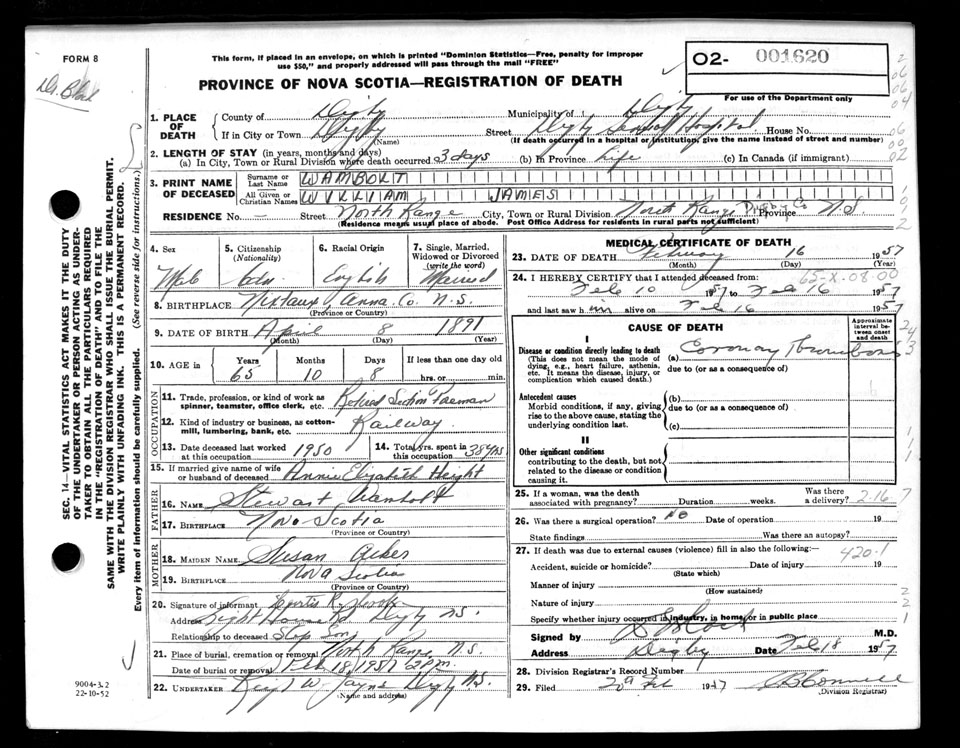 FORM 8
Dr. Black
This form, if placed in an envelope, on which is printed "Dominion Statistics—Free, penalty for improper
use $50," and properly addressed will pass through the mail "FREE"
PROVINCE OF NOVA SCOTIA—REGISTRATION OF DEATH
O2- 001620
For use of the Department only
1. PLACE OF DEATH
County of Digby Municipality of Digby
If in City or Town Digby Street Digby General Hospital House No.
(Name) (If death occurred in a hospital or institution, give the name instead of street and number)
2. LENGTH OF STAY (in years, months and days)
(a) In City, Town or Rural Division where death occurred 3 days (b) in Province Life (c) In Canada (if immigrant)
3. PRINT NAME OF DECEASED
Surname or Last Name WAMBOLT
All Given or Christian Names WILLIAM JAMES
RESIDENCE No. — Street North Range City, Town or Rural Division North Range Digby Co Province N.S.
(Residence means usual place of abode. Post Office Address for residents in rural parts not sufficient)
4. Sex Male
5. Citizenship (Nationality) Cdn.
6. Racial Origin English
7. Single, Married, Widowed or Divorced (write the word) Married
8. BIRTHPLACE Nictaux Anna. Co. N.S.
(Province or Country)
9. DATE OF BIRTH April 8 1891
(Month) (Day) (Year)
10. AGE in Years 65 Months 10 Days 8 If less than one day old hrs. or min.
OCCUPATION
11. Trade, profession, or kind of work as spinner, teamster, office clerk, etc. Retired Section Foreman
12. Kind of industry or business, as cotton-mill, lumbering, bank, etc. Railway
13. Date deceased last worked at this occupation 1950
14. Total yrs. spent in this occupation 38 yrs
15. If married give name of wife or husband of deceased Annie Elizabeth Height
FATHER
16. NAME Stewart Wambolt
17. BIRTHPLACE Nova Scotia
(Province or Country)
MOTHER
18. MAIDEN NAME Susan Acker
19. BIRTHPLACE Nova Scotia
(Province or Country)
20. Signature of informant Curtis R.
Address Light House Rd Digby N.S.
Relationship to deceased Step son
21. Place of burial, cremation or removal North Range, N.S.
Date of burial or removal Feb. 18, 1957 2 P.M.
22. UNDERTAKER W. Jayne Digby N.S.
(Name and address)
MEDICAL CERTIFICATE OF DEATH
23. DATE OF DEATH February 16 1957
(Month) (Day) (Year)
24. I HEREBY CERTIFY that I attended deceased from: 65-X-08-00
Feb 10 1957 to Feb 16 1957
and last saw him alive on Feb 16 1957
CAUSE OF DEATH
Approximate interval between onset and death
I
Disease or condition directly leading to death
(This does not mean the mode of dying, e.g., heart failure, asthenia, etc. It means the disease, injury, or complication which caused death.)
(a) Coronary Thrombosis
due to (or as a consequence of)
Antecedent causes
Morbid conditions, if any, giving rise to the above cause, stating the underlying condition last.
(b)
due to (or as a consequence of)
(c)
II
Other significant conditions
contributing to the death, but not related to the disease or condition causing it.
25. If a woman, was the death associated with pregnancy? Duration weeks. Was there a delivery? 2-16 7
26. Was there a surgical operation? No Date of operation 19
State findings Was there an autopsy?
27. If death was due to external causes (violence) fill in also the following:— 420-1
Accident, suicide or homicide? Date of injury 19
(State which)
Manner of injury
(How sustained)
Nature of injury
Specify whether injury occurred in industry, in home, or in public place
Signed by M.D.
Address Digby Date Feb 18 1957
28. Division Registrar's Record Number
29. Filed 20th Feb 1957
(Division Registrar)
SEC. 14—VITAL STATISTICS ACT MAKES IT THE DUTY
OF THE UNDERTAKER OR PERSON ACTING AS UNDER-
TAKER TO OBTAIN ALL THE PARTICULARS REQUIRED
IN THE "REGISTRATION OF DEATH" AND TO FILE THE
SAME WITH THE DIVISION REGISTRAR WHO SHALL ISSUE THE BURIAL PERMIT.
WRITE PLAINLY WITH UNFADING INK. THIS IS A PERMANENT RECORD.
Every item of Information should be carefully supplied. (See reverse side for instructions.)
9004-3.2
22-10-52